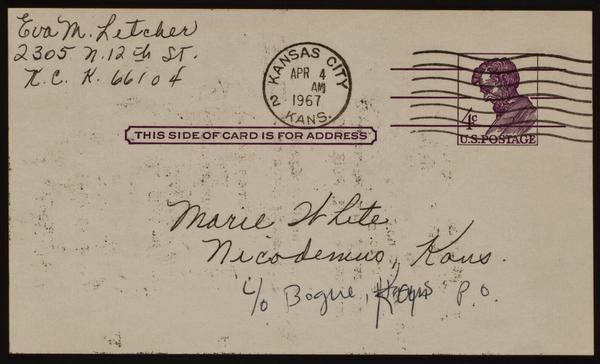 Eva M. Letcher
2305 N. 12th ST.
K. C. K. 66104
KANSAS CITY
APR 4
AM
2
1967
KANS.
4c
U.S. POSTAGE
THIS SIDE OF CARD IS FOR ADDRESS
Marie White
Nicodemus, Kans.
c/o Bogue, Kans P.O.